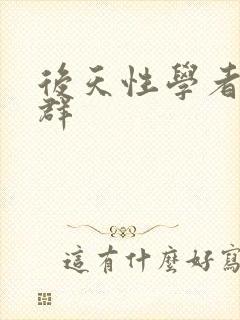 後天性學者
群
這有什麼好寫